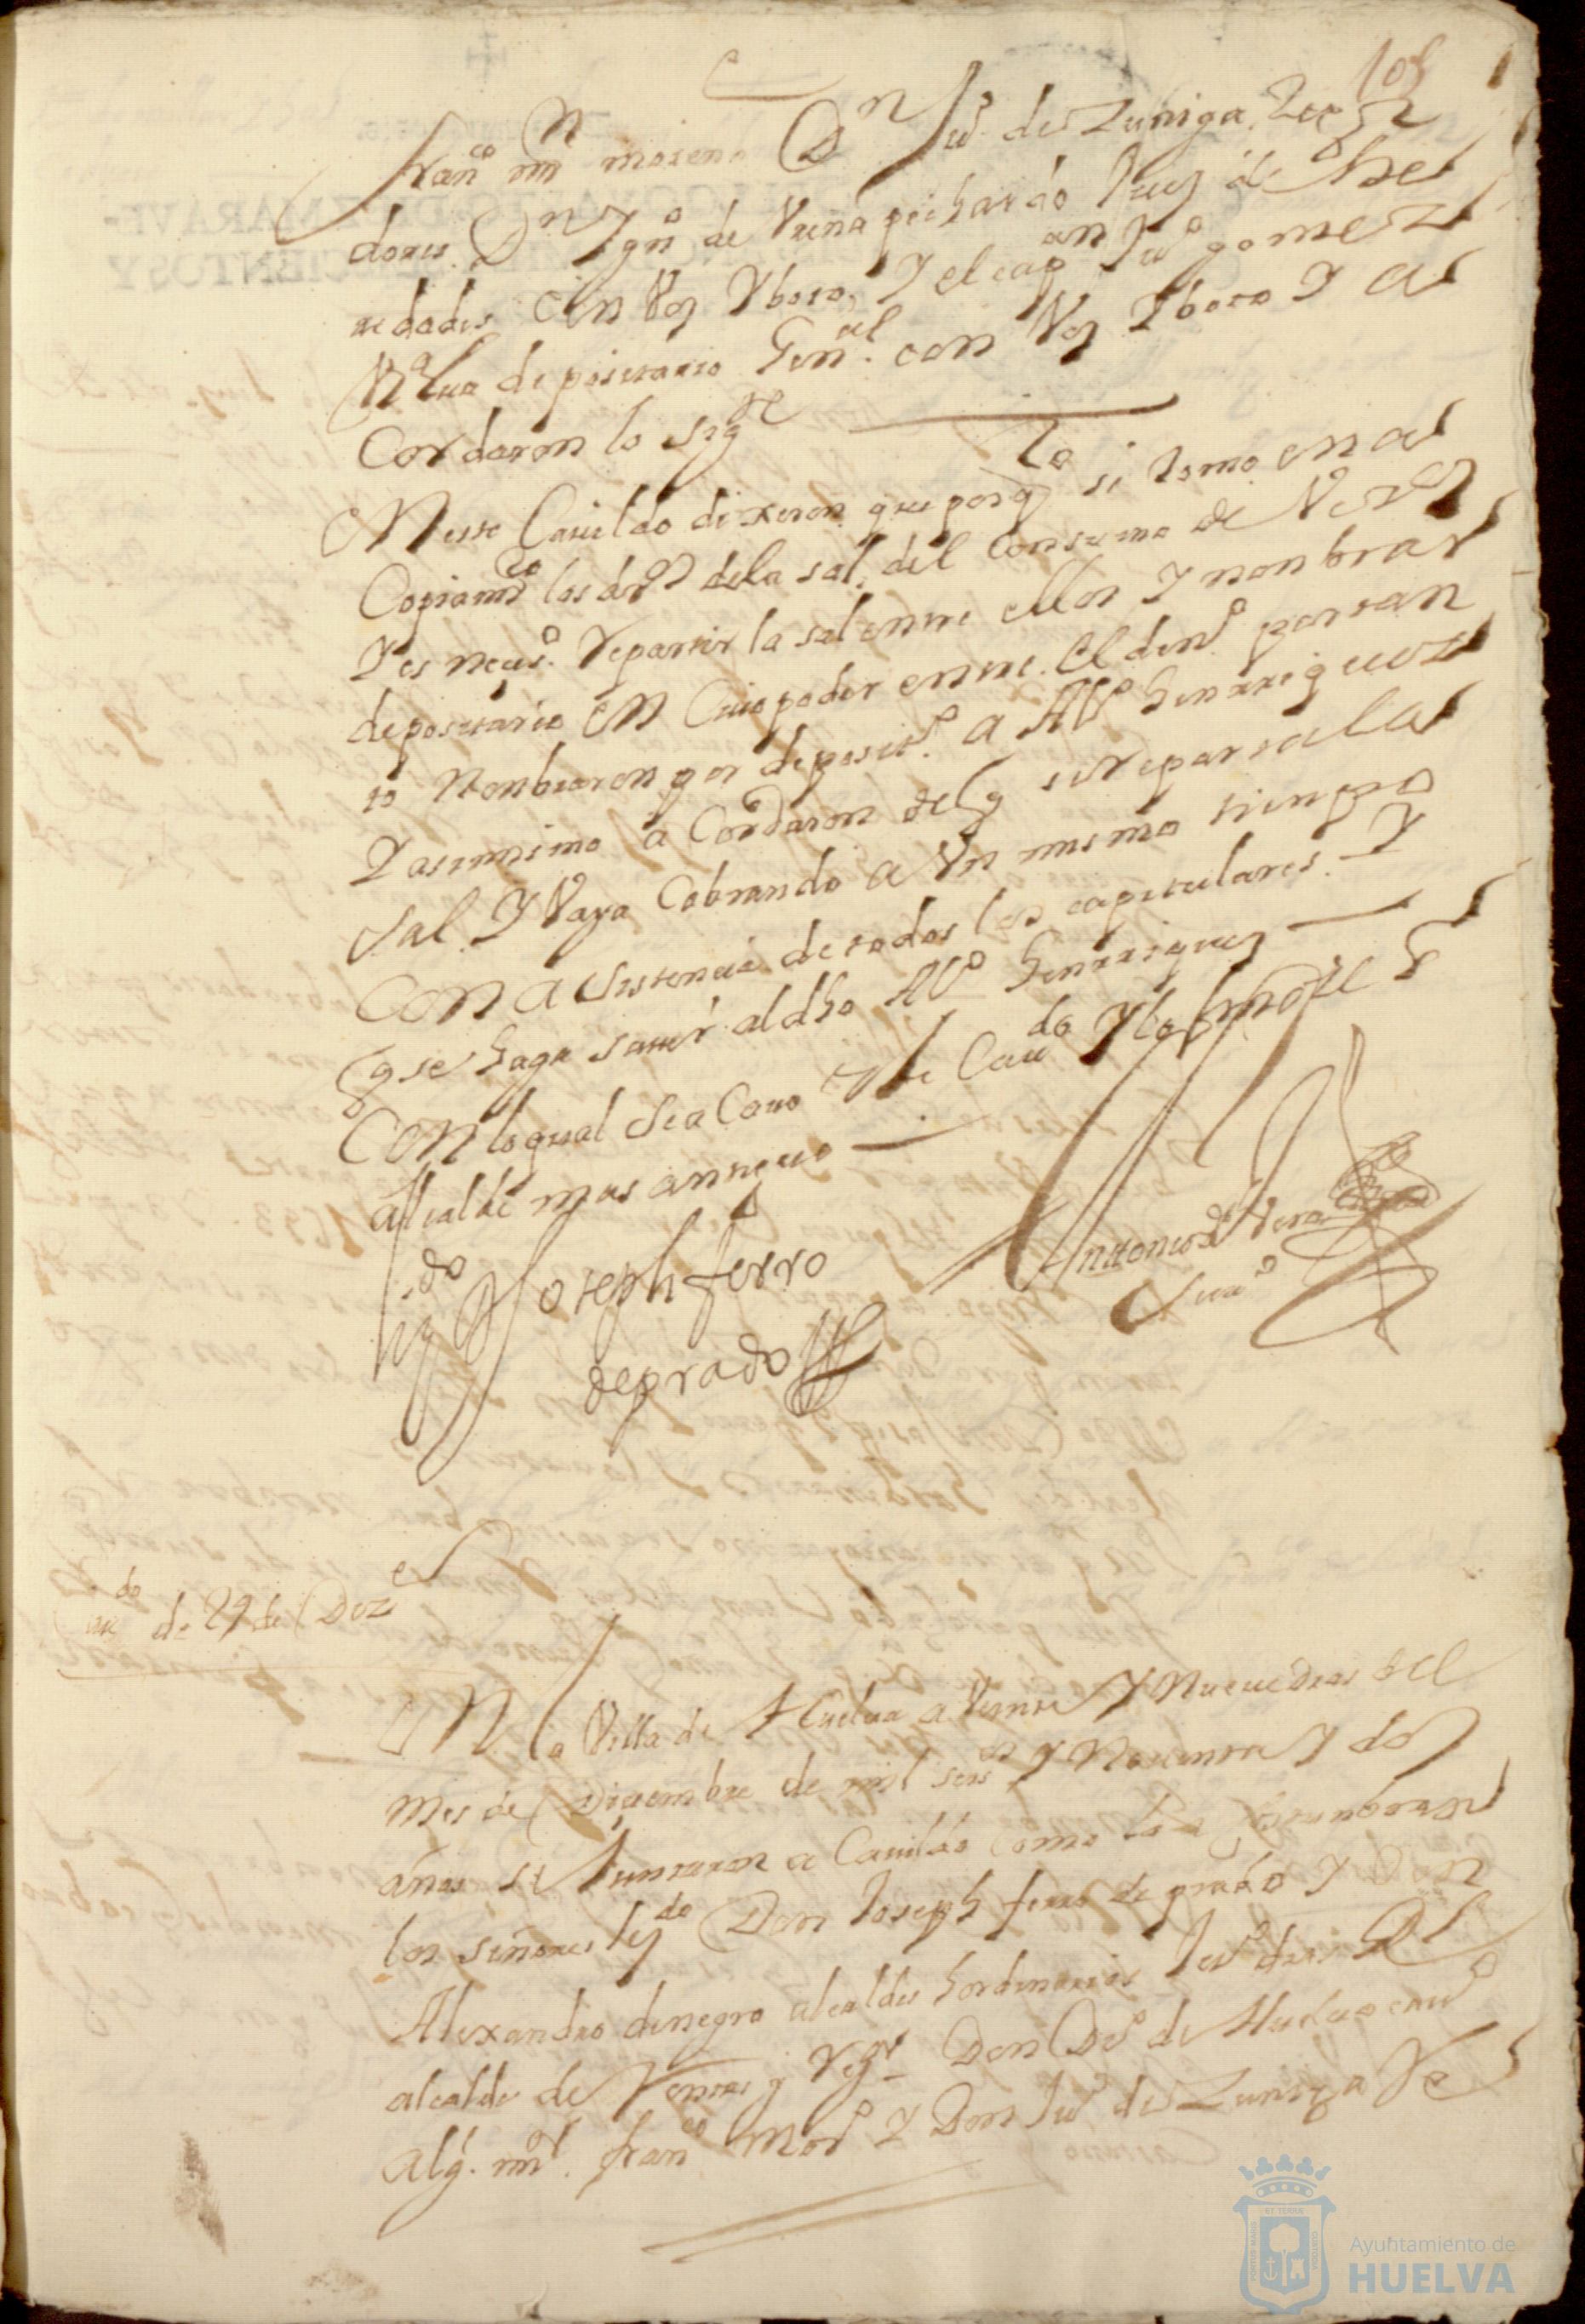 108
Franco min moreno Dn Juo de Zuñiga Rexi
dores Dn Igno de Vreña pichardo Juez de Here
dades Con Voz Y boto, Y el capan Juo gomez
Va lua depositario Genal. con Voz Y boto Y a
Cordaron lo sigte
EN este Cauildo dixeron que por qto se tomo en a
Copiamto los dros dela sal del Consumo de Veos
Y es neceso. Repartir la sal entre ellos Y nonbrar
depositario EN Cuio poder entre el dino por tan
to Nonbraron por deposito. a Alo henrriquez
Y asimismo a Cordaron de q se reparta la
sal Y Vaya Cobrando a Vn mismo tienpo
CON a sistencia de todos los capitulares. Y
q se haga sauer al dho Alo henrriquez
CON lo qual se a Cauo este Caudo Y lo firmo el
alcalde mas antiguo
Lizdo Joseph ferro
de prado
Antonio de Vera
Escrino
Caudo de 29 de Dize
EN la Villa de Huelua a Veinte Y Nueue dias del
mes de Diziembre de mil seisos Y Nouenta Y dos
años se Juntaron a Cauildo Como lo a Costunbran
los señores lizdo Don Joseph ferro de prado Y Don
Alexandro denegro alcaldes hordinarios Juo dias
alcalde de Ventas y Regor Don Do de Huelua
Alg. mor. franco Moro Y Don Juo de Zuniga Re
Ayuntamiento de
HUELVA